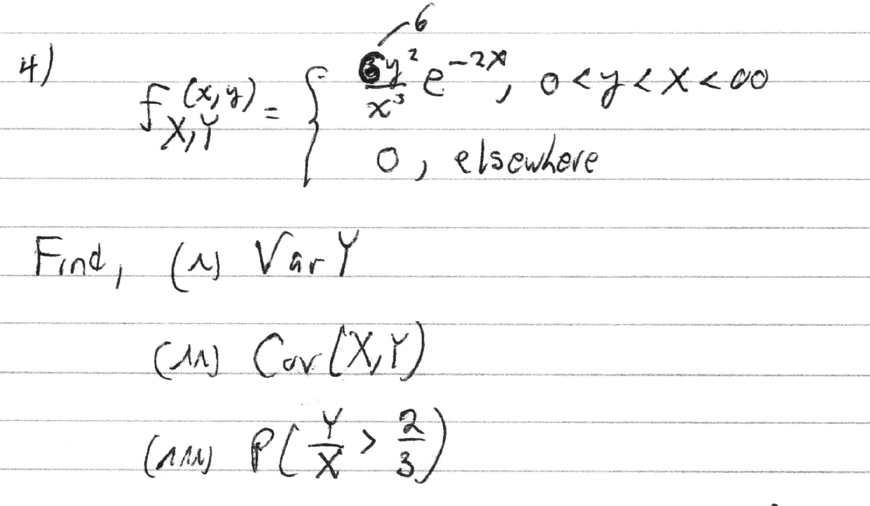 6
4) f_{X,Y}(x,y) = { 6y²/x³ e^{-2x}, 0<y<x<∞
0, elsewhere
Find, (i) Var Y
(ii) Cov(X,Y)
(iii) P(Y/X > 2/3)